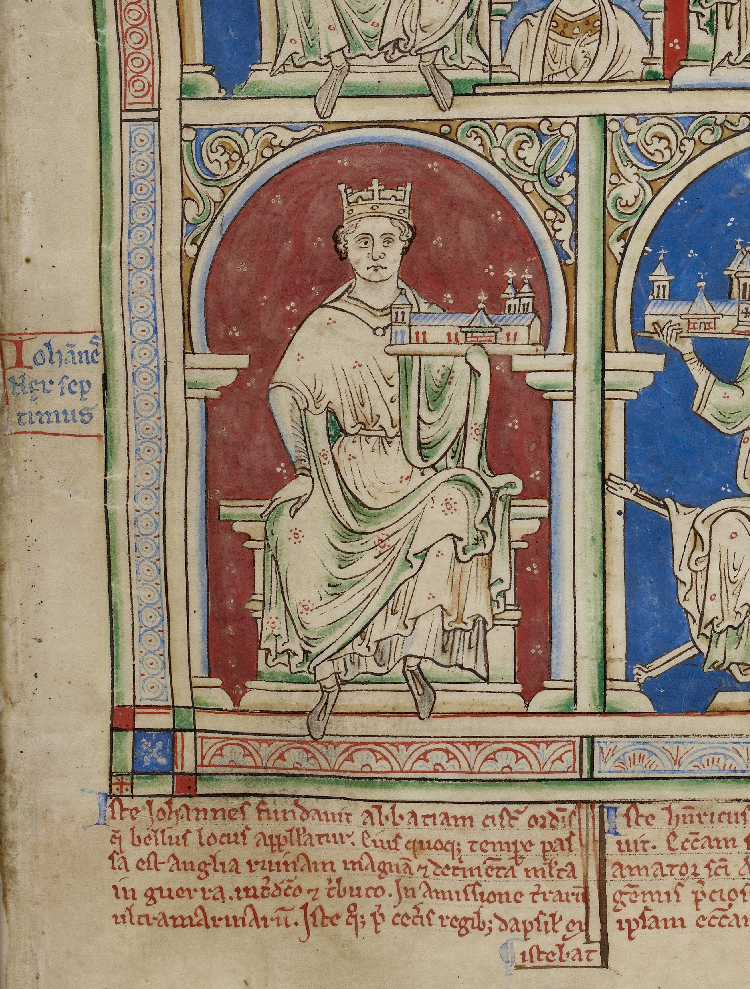 Iohān̄e
Rex sep
timus
Iste Johannes fundavit abbatiam cist̄ ordīs
q̄ bellus locus appllatur. Eius quoq; tempr̄e pas
sa est Anglia ruinam magnā ⁊ det̄menta ml̄ta
in guerra. int̄dc̄o ⁊ t̄buto. In amissione t̄rarū
ultramarinarū. Iste q; p̄ cet̄is regib; dapsil̄ ex
istebat
Iste hn̄ricus
uit. Ecc̄am s
amator sc̄i
gēmis p̄cios
ip̄sam ecc̄a